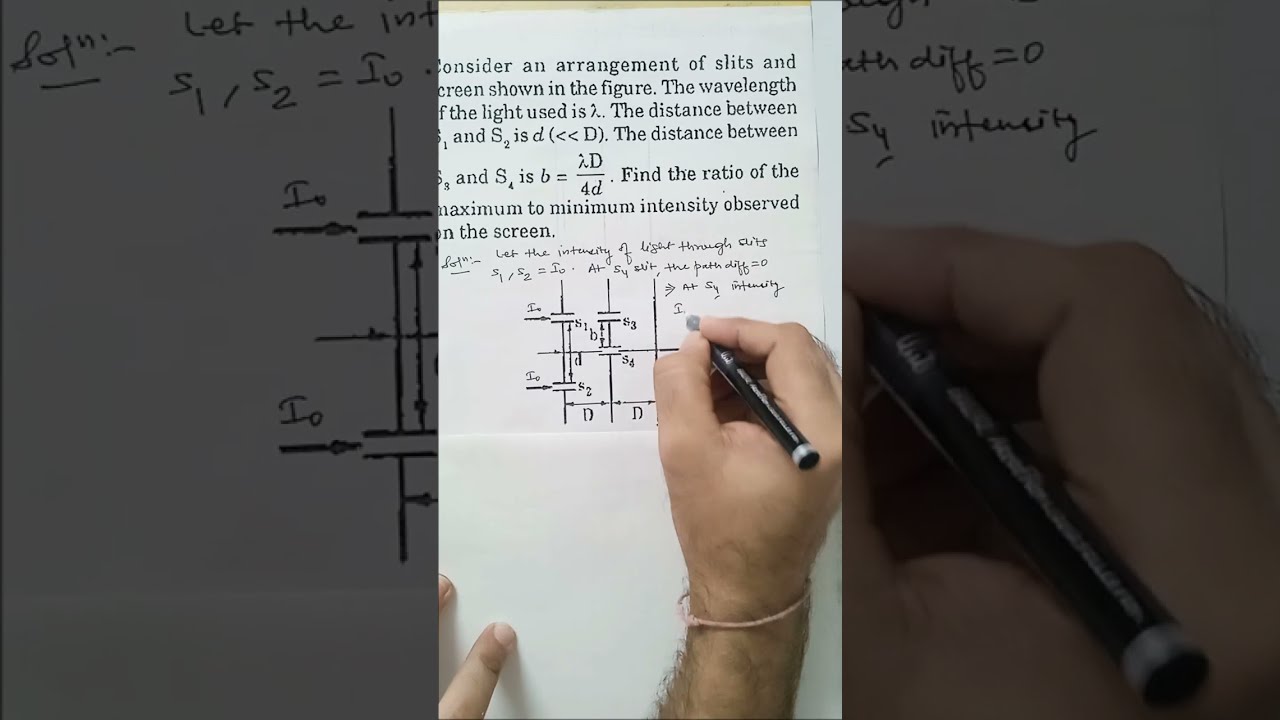 Consider an arrangement of slits and
creen shown in the figure. The wavelength
f the light used is λ. The distance between
S₁ and S₂ is d (<< D). The distance between
S₃ and S₄ is b = λD/4d . Find the ratio of the
maximum to minimum intensity observed
on the screen.
Solⁿ:- Let the intensity of light through slits
S₁, S₂ = I₀ . At S₄ slit, the path diff = 0
⇒ At S₄ intensity
I
I₀ S₁ S₃
b
d S₄
I₀ S₂
D D
Solⁿ:- Let the int
S₁, S₂ = I₀ .
I₀
I₀
through
ath diff = 0
S₄ intensity